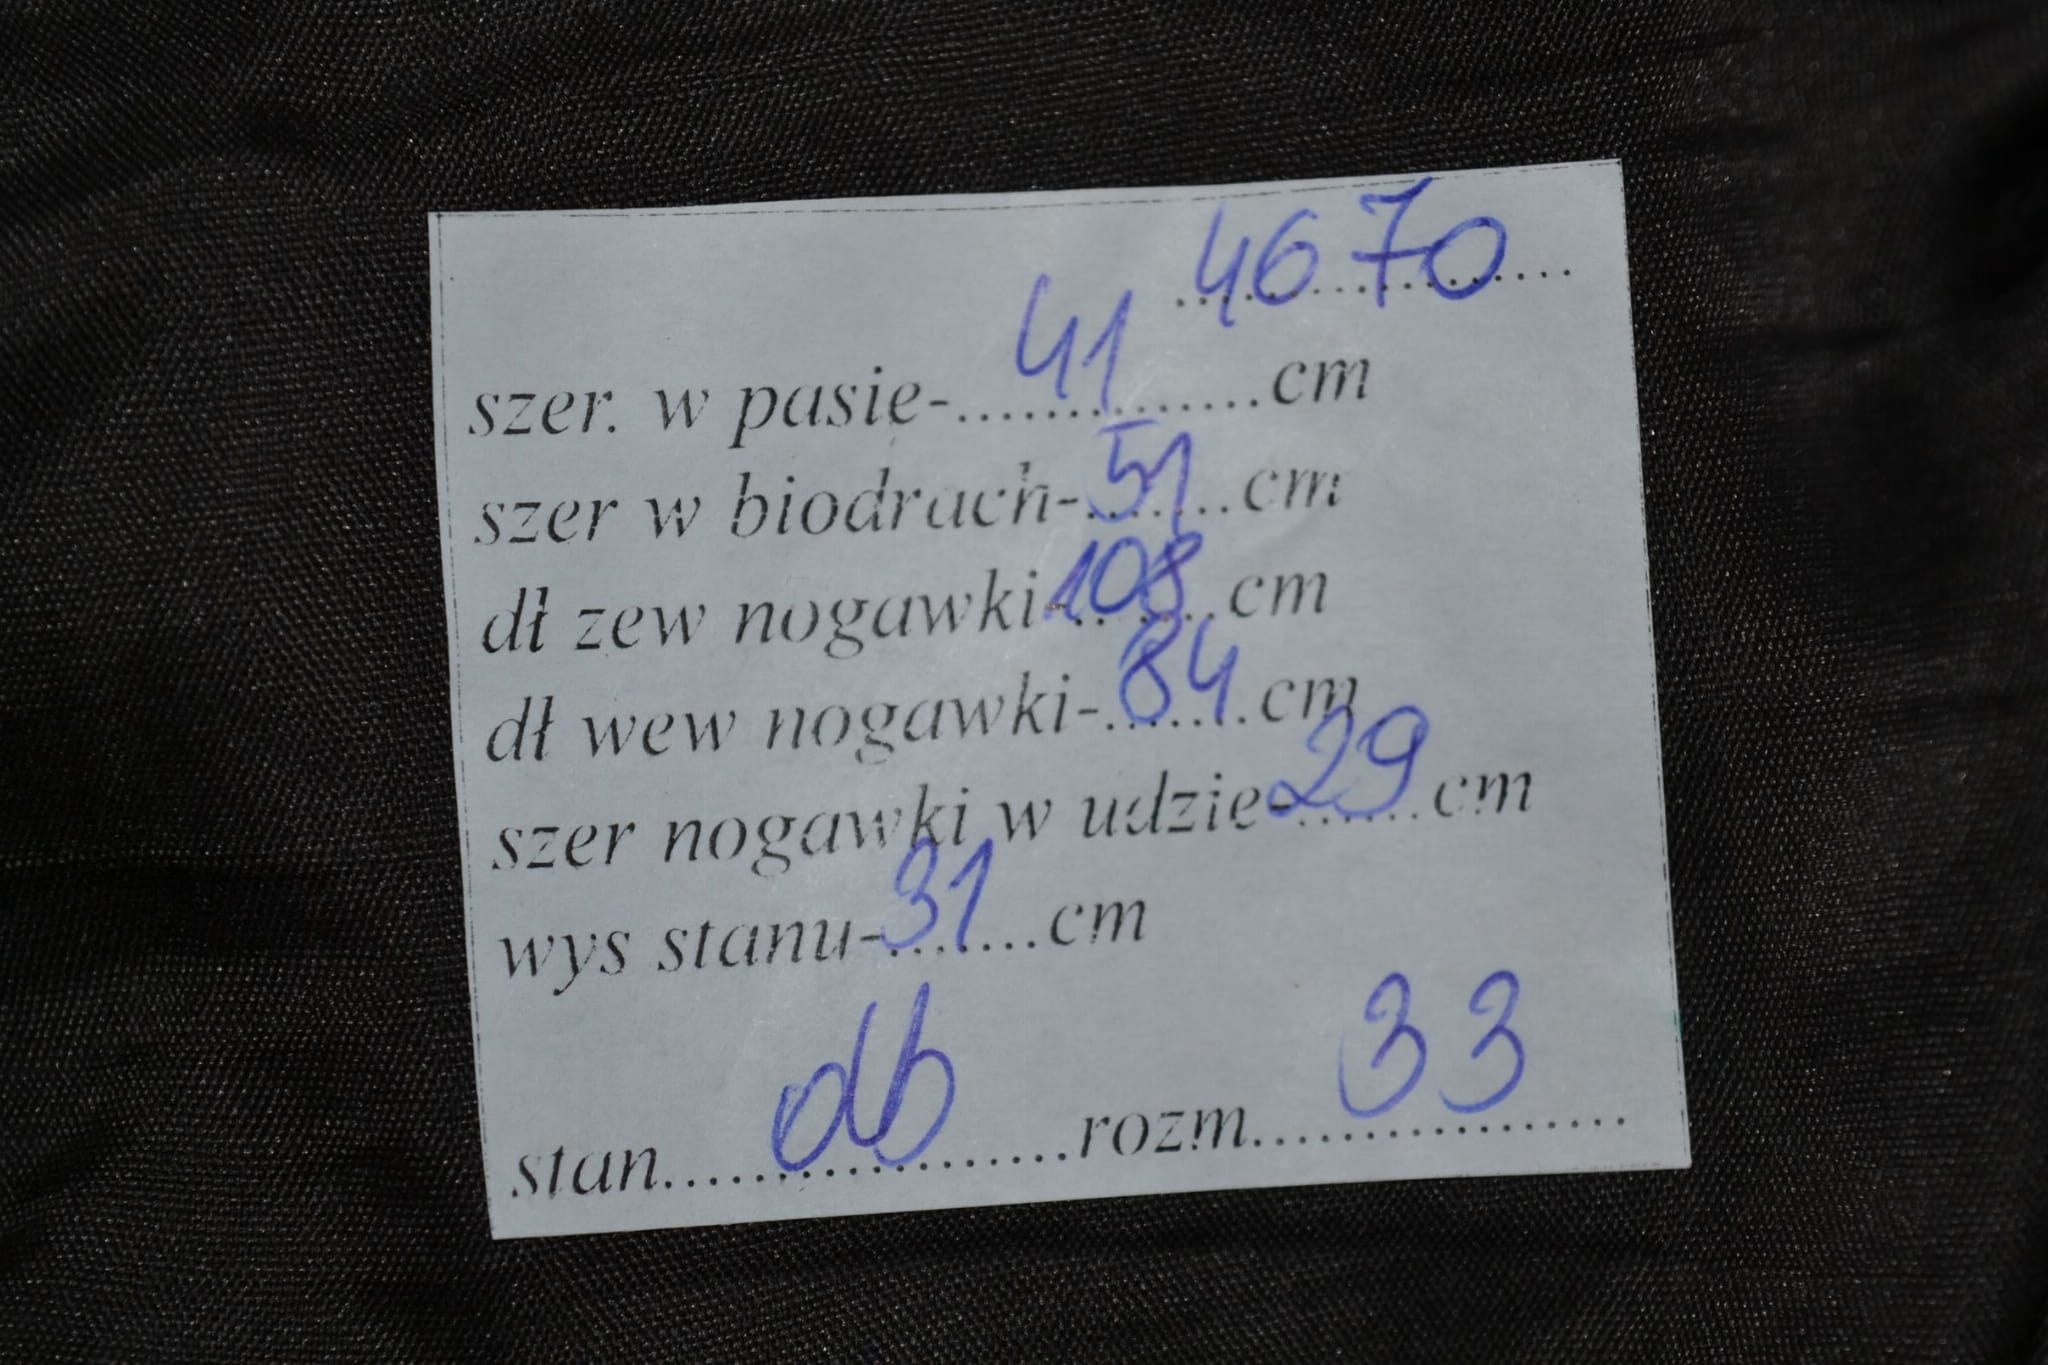 4670
szer. w pasie-....41....cm
szer w biodrach-..51..cm
dł zew nogawki-..108..cm
dł wew nogawki-..84..cm
szer nogawki w udzie-..29..cm
wys stanu-..31..cm
stan....db....rozm....33....